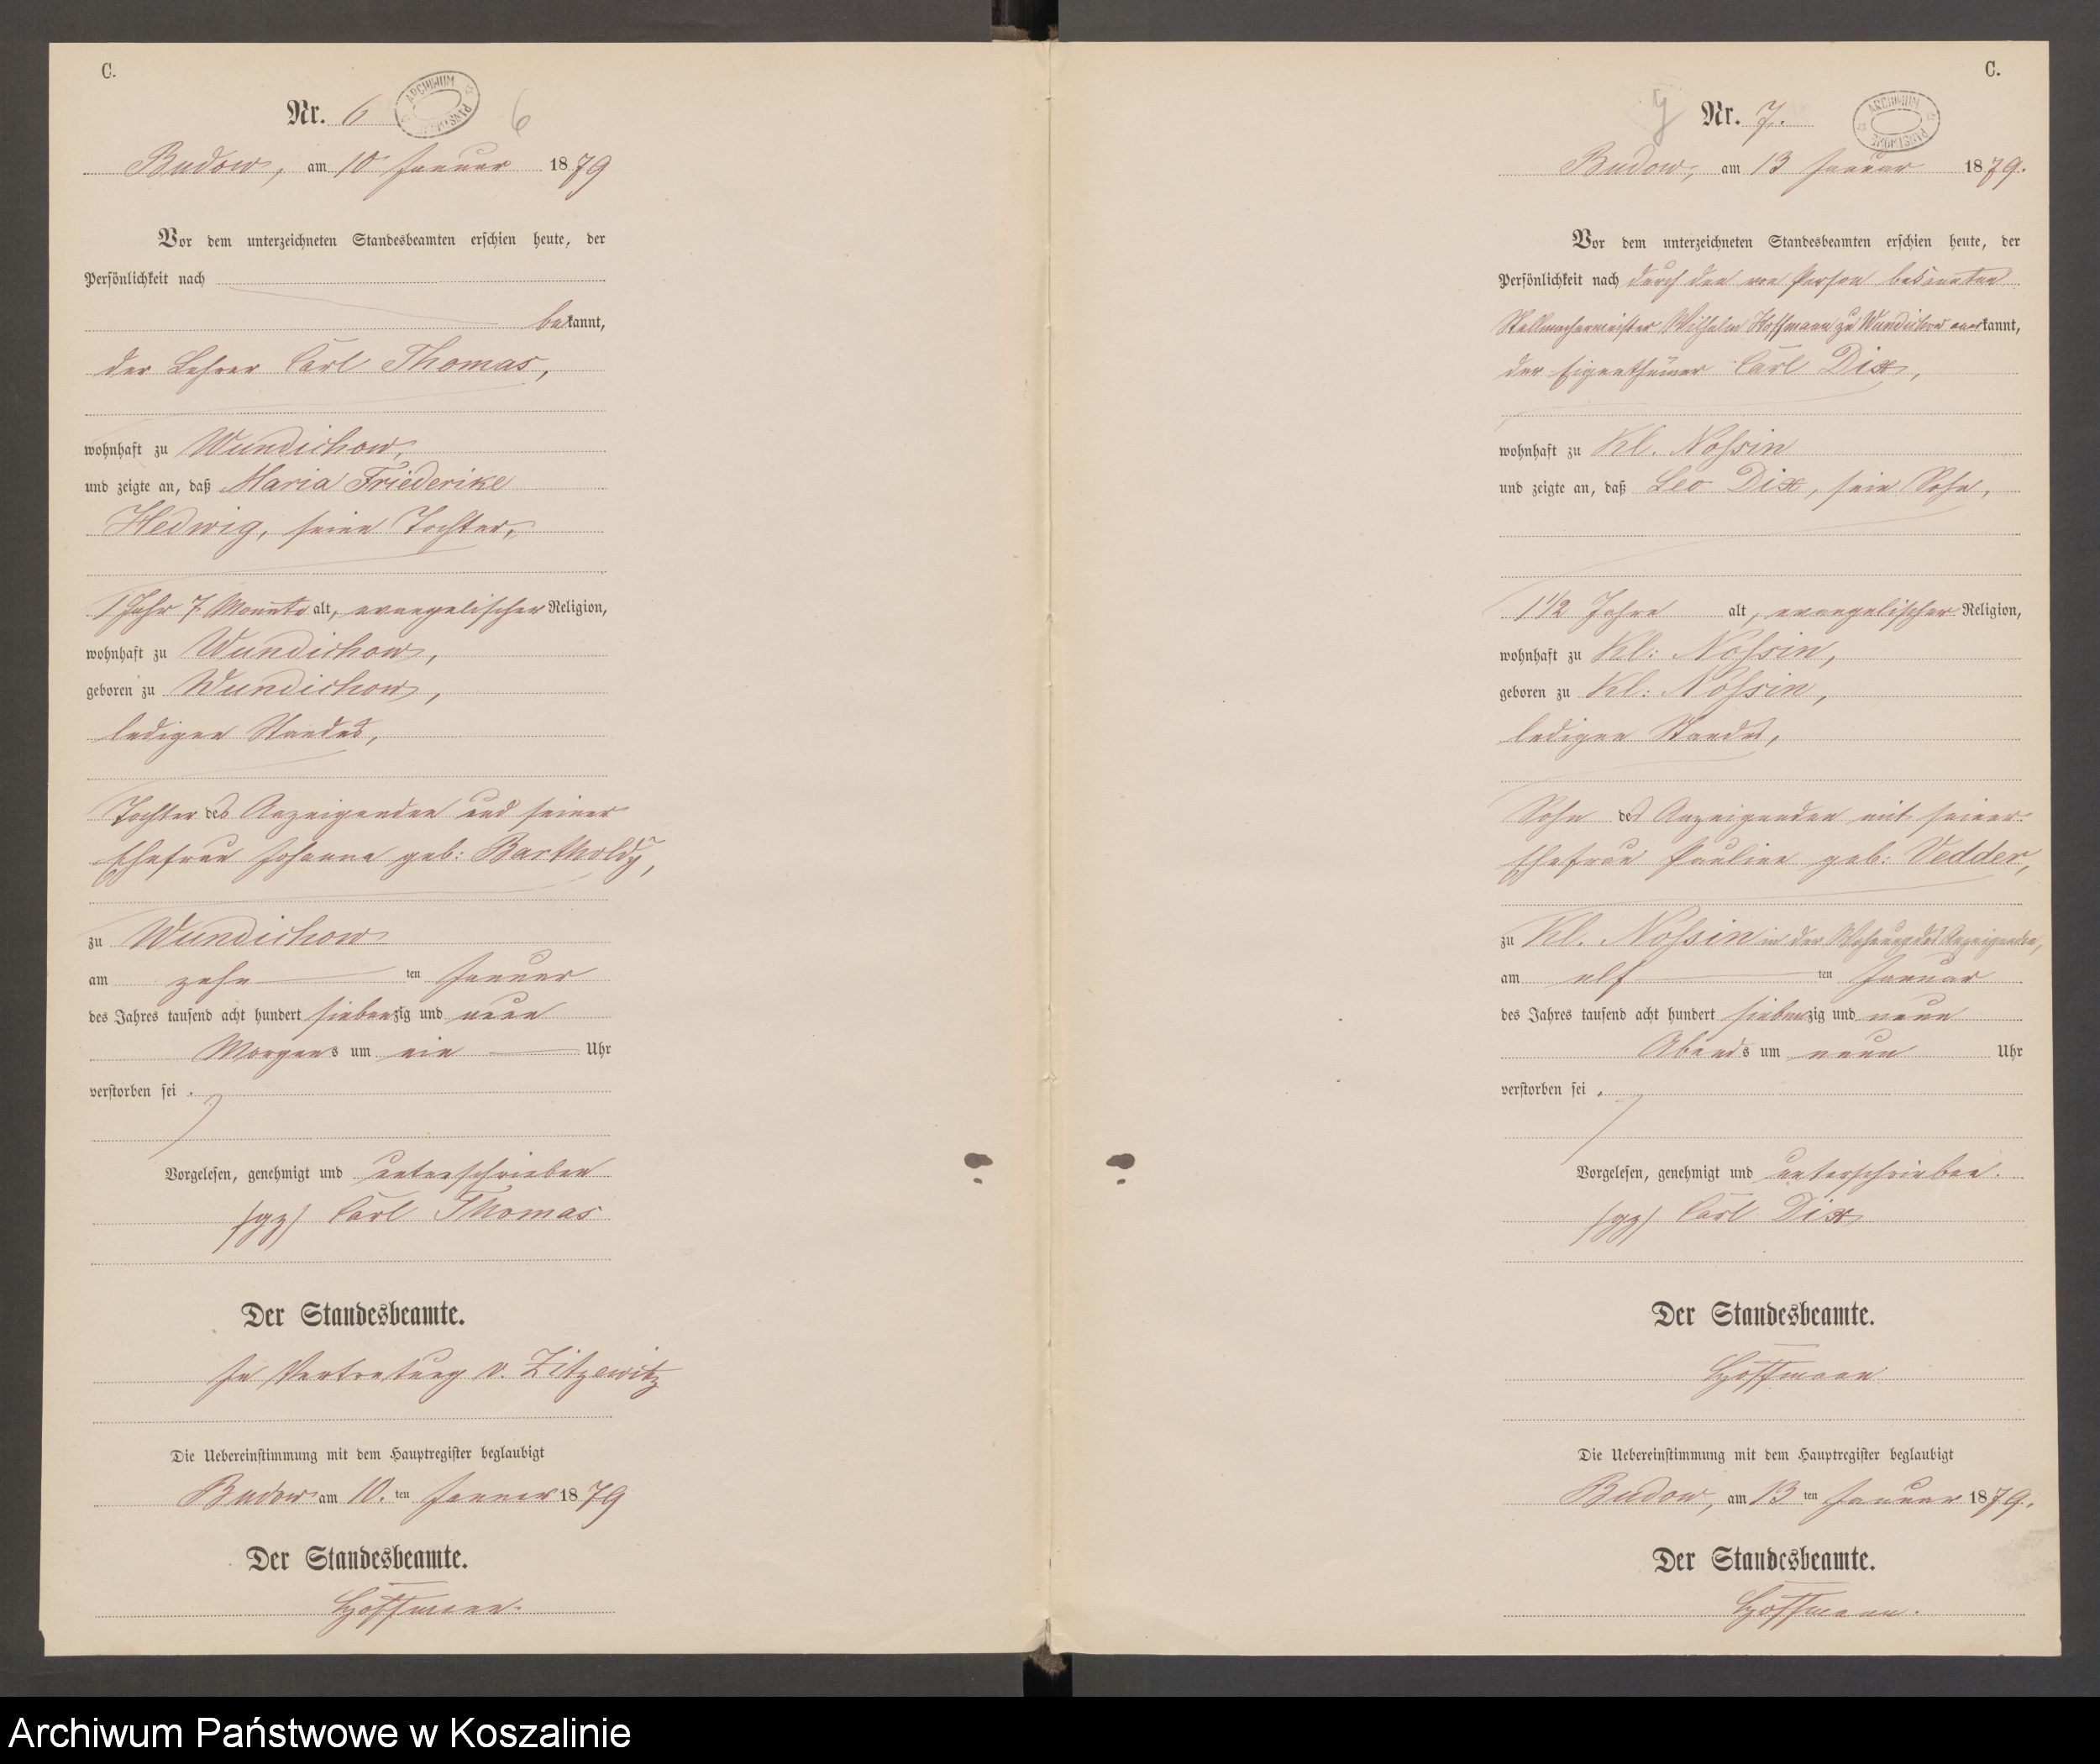 C.
Nr. 6
ARCHIWUM PAŃSTWOWE
6
Budow, am 10 Januar 1879
Vor dem unterzeichneten Standesbeamten erschien heute, der
Persönlichkeit nach
bekannt,
der Lehrer Carl Thomas,
wohnhaft zu Wundichow,
und zeigte an, daß Maria Friederike
Hedwig, seine Tochter,
1 Jahr 7 Monate alt, evangelischer Religion,
wohnhaft zu Wundichow,
geboren zu Wundichow,
ledigen Standes,
Tochter des Anzeigenden und seiner
Ehefrau Johanna geb: Bartholdy,
zu Wundichow
am zehn ten Januar
des Jahres tausend acht hundert siebenzig und neun
Morgens um ein Uhr
verstorben sei.
Vorgelesen, genehmigt und unterschrieben
(gz) Carl Thomas
Der Standesbeamte.
In Vertretung v. Zitzewitz
Die Uebereinstimmung mit dem Hauptregister beglaubigt
Budow am 10. ten Januar 1879
Der Standesbeamte.
Hoffmann.
C.
Nr. 7.
ARCHIWUM PAŃSTWOWE
Budow, am 13 Januar 1879.
Vor dem unterzeichneten Standesbeamten erschien heute, der
Persönlichkeit nach durch den von Person bekannten
Stellmachermeister Wilhelm Hoffmann zu Wundichow anerkannt,
der Eigenthümer Carl Dix,
wohnhaft zu Kl. Nossin
und zeigte an, daß Leo Dix, sein Sohn,
1 1/2 Jahre alt, evangelischer Religion,
wohnhaft zu Kl: Nossin,
geboren zu Kl: Nossin,
ledigen Standes,
Sohn des Anzeigenden mit seiner
Ehefrau Pauline geb: Vedder,
zu Kl. Nossin in der Wohnung des Anzeigenden,
am elf ten Januar
des Jahres tausend acht hundert siebenzig und neun
Abends um neun Uhr
verstorben sei.
Vorgelesen, genehmigt und unterschrieben.
(gz) Carl Dix
Der Standesbeamte.
Hoffmann
Die Uebereinstimmung mit dem Hauptregister beglaubigt
Budow, am 13 ten Januar 1879.
Der Standesbeamte.
Hoffmann.
Archiwum Państwowe w Koszalinie